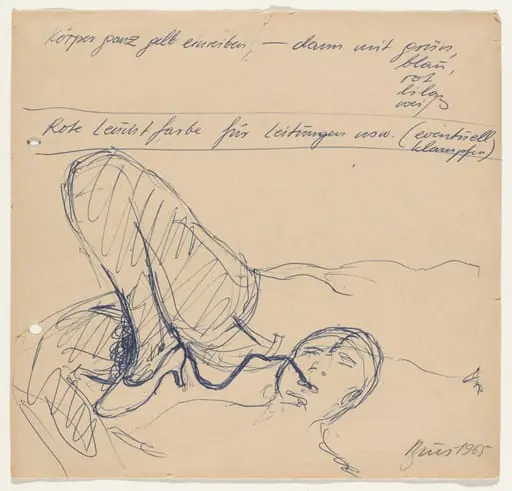 Körper ganz gelb einreiben, — dann mit grün,
blau,
rot
lila,
weiß
Rote Leuchtfarbe für Leitungen usw. (eventuell
klampfen)
Brus 1965